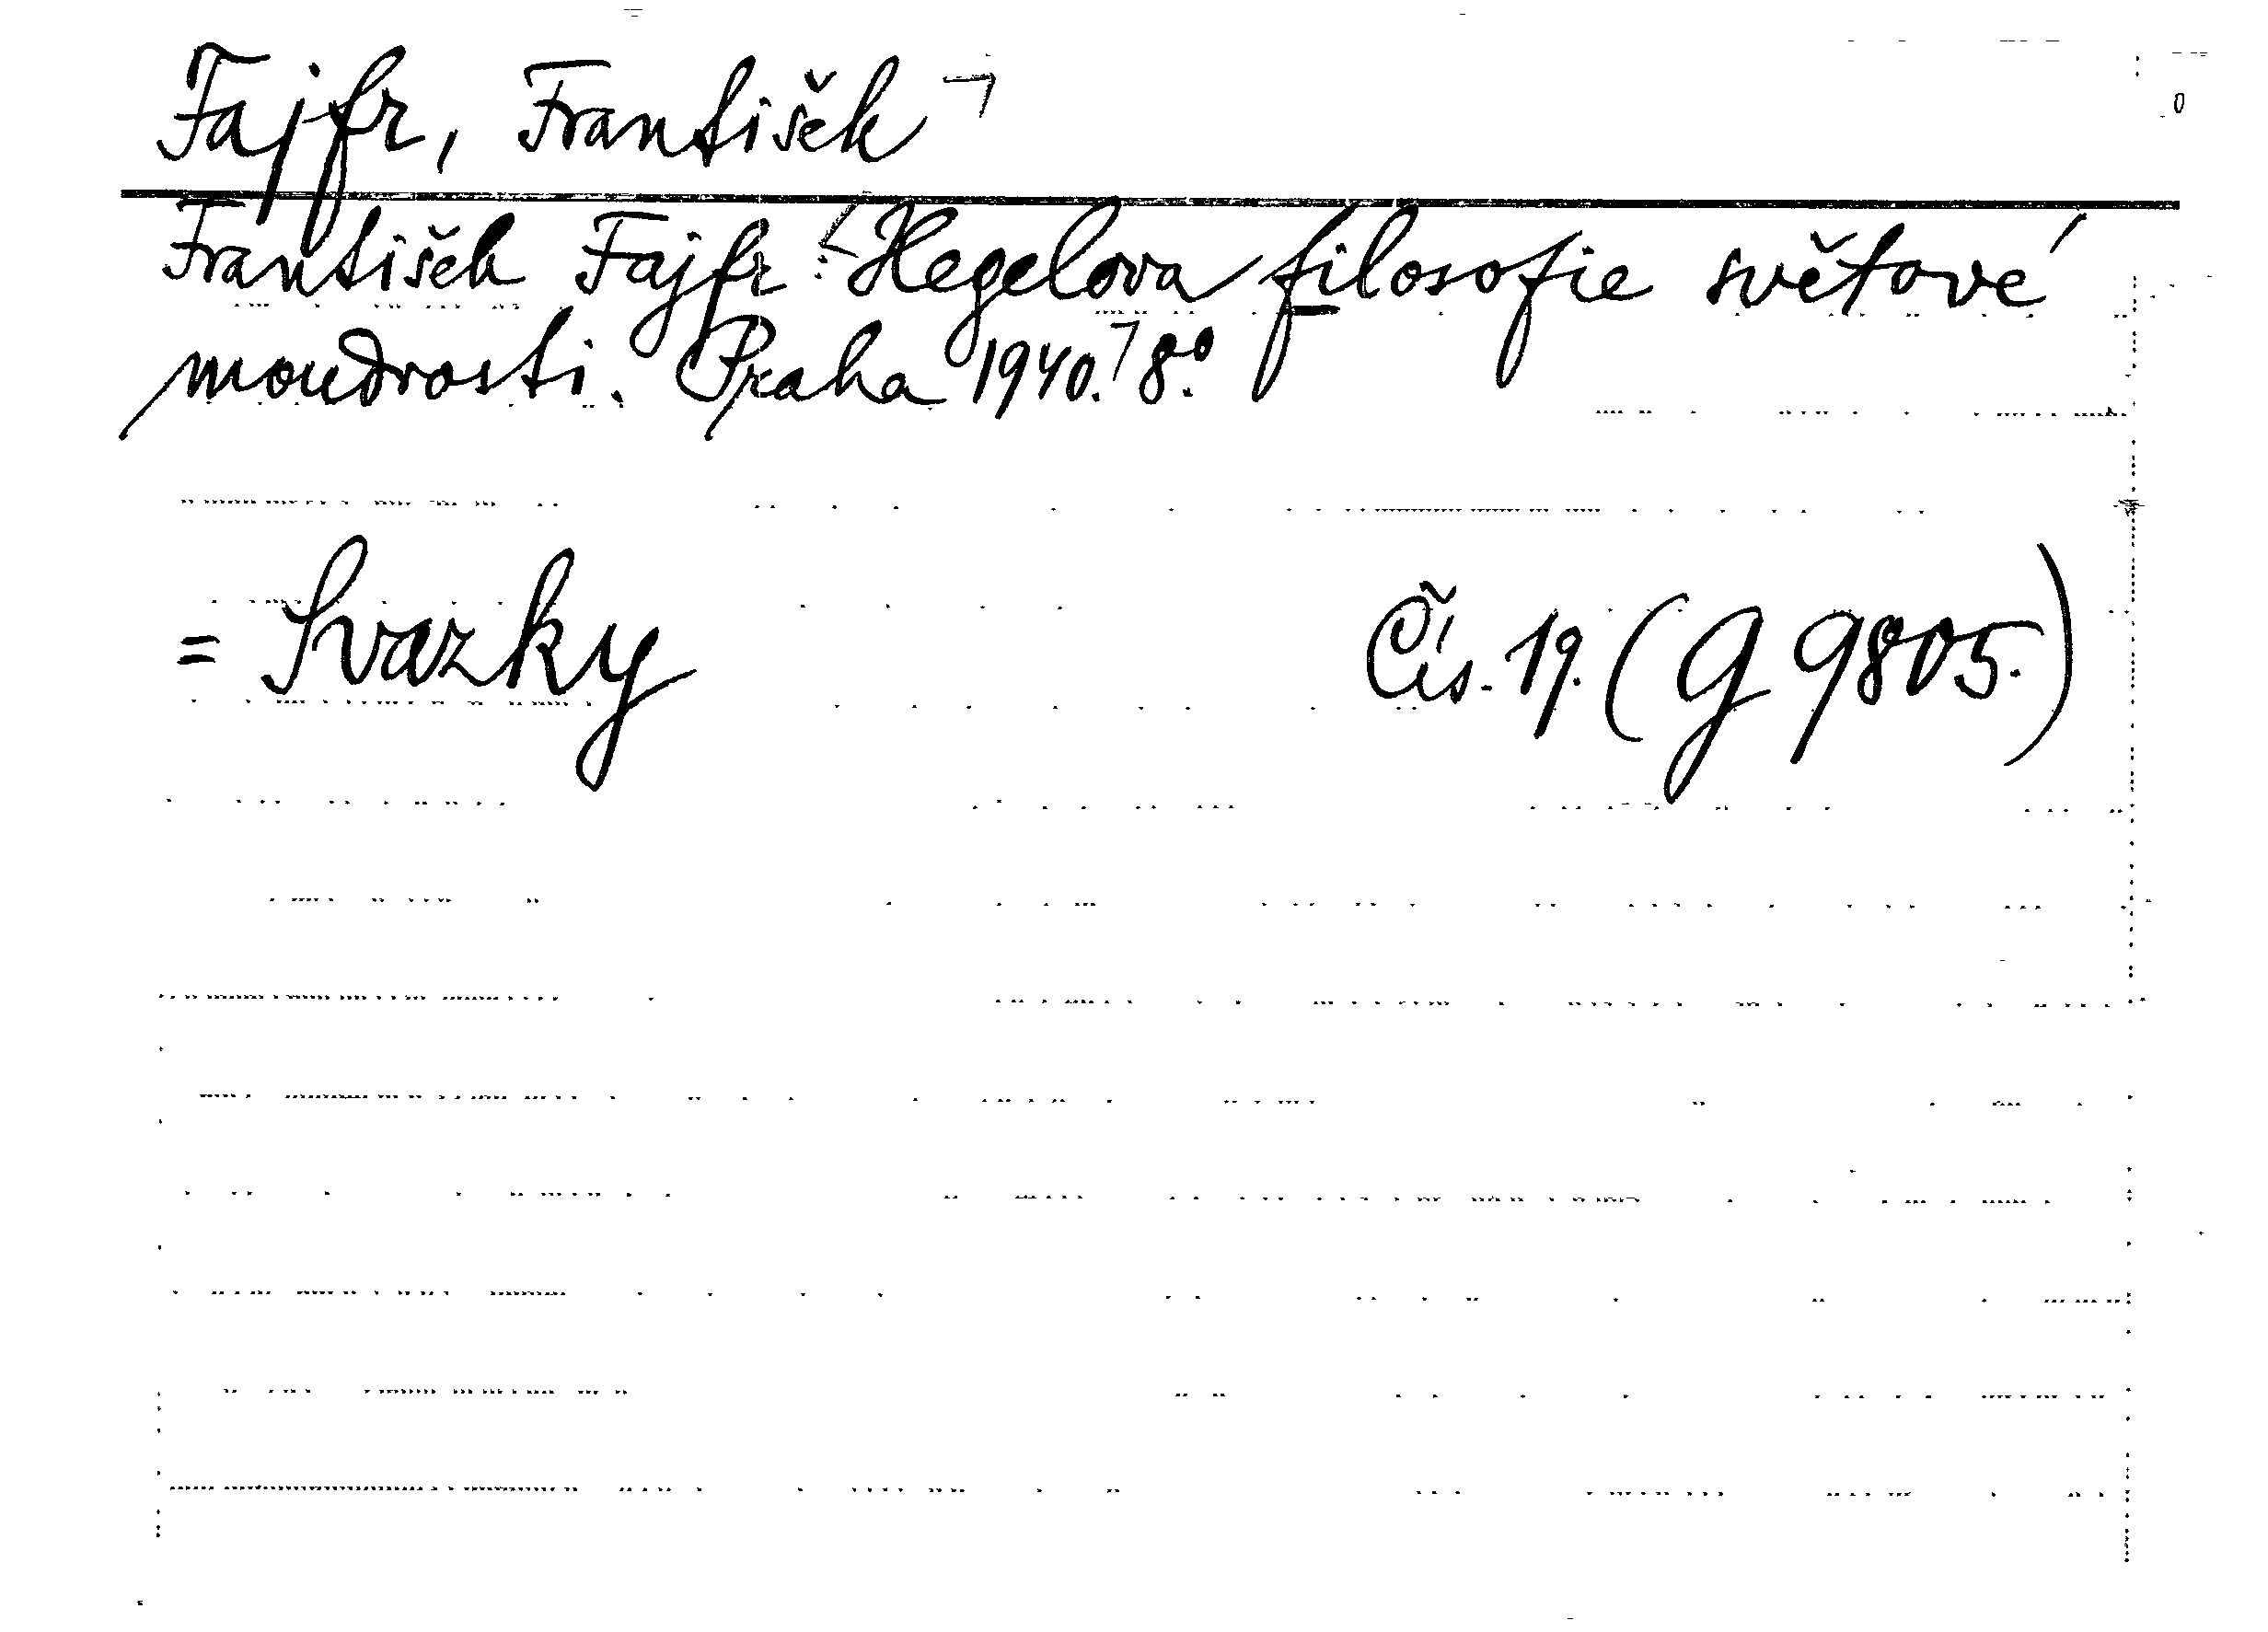 Fajfr, František
František Fajfr: Hegelova filosofie světové
moudrosti. Praha 1940. 8°.
= Svazky Čís. 19. (G 9805.)